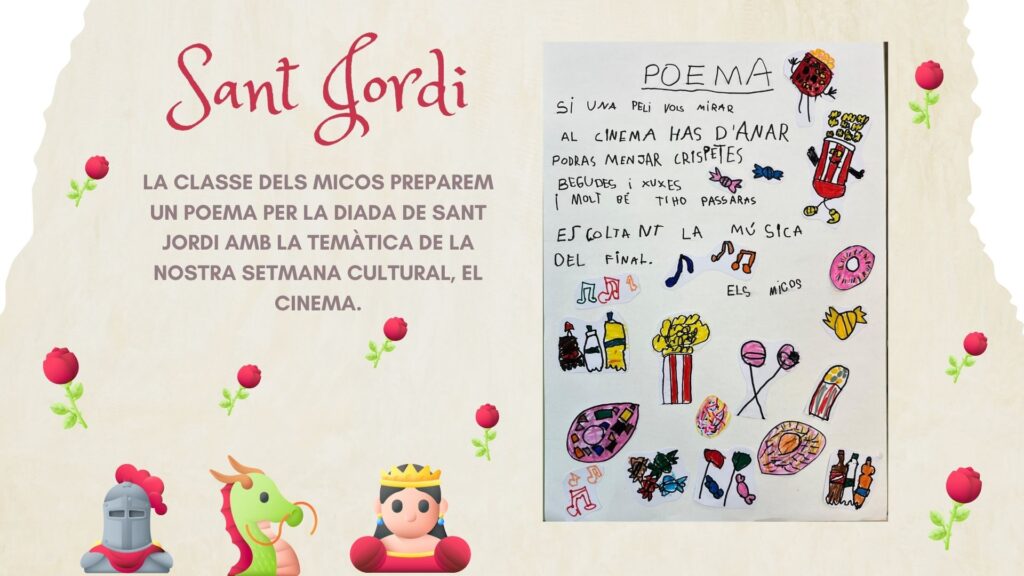 Sant Jordi
LA CLASSE DELS MICOS PREPAREM
UN POEMA PER LA DIADA DE SANT
JORDI AMB LA TEMÀTICA DE LA
NOSTRA SETMANA CULTURAL, EL
CINEMA.
POEMA
SI UNA PELI VOLS MIRAR
AL CINEMA HAS D'ANAR
PODRAS MENJAR CRISPETES
BEGUDES i XUXES
I MOLT BÉ TIHO PASSARAS
ESCOLTANT LA MÚSICA
DEL FINAL.
ELS MICOS